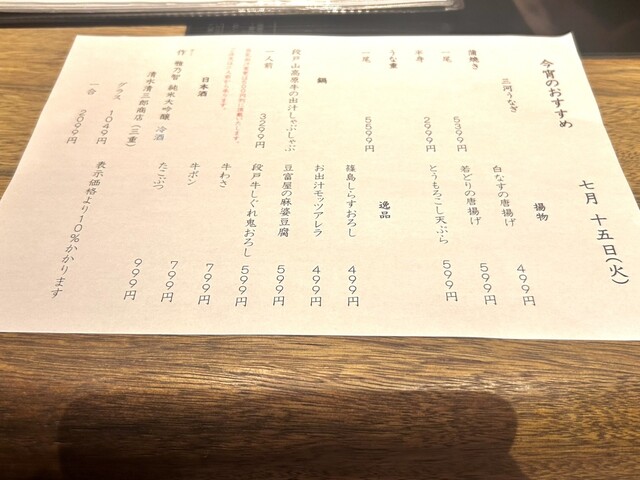 今宵のおすすめ 七月 十五日(火)
三河うなぎ
蒲焼き
一尾 5399円
半身 2999円
うな重
一尾 5599円
鍋
段戸山高原牛の出汁しゃぶしゃぶ
一人前 3299円
日本酒
作 雅乃智 純米大吟醸 冷酒
清水清三郎商店(三重)
グラス 1049円
一合 2099円
揚物
白なすの唐揚げ 499円
若どりの唐揚げ 599円
とうもろこし天ぷら 599円
逸品
篠島しらすおろし 499円
お出汁モッツアレラ 499円
豆富屋の麻婆豆腐 599円
段戸牛しぐれ鬼おろし 599円
牛わさ 799円
牛ポン 799円
たこぶつ 999円
表示価格より10%かかります